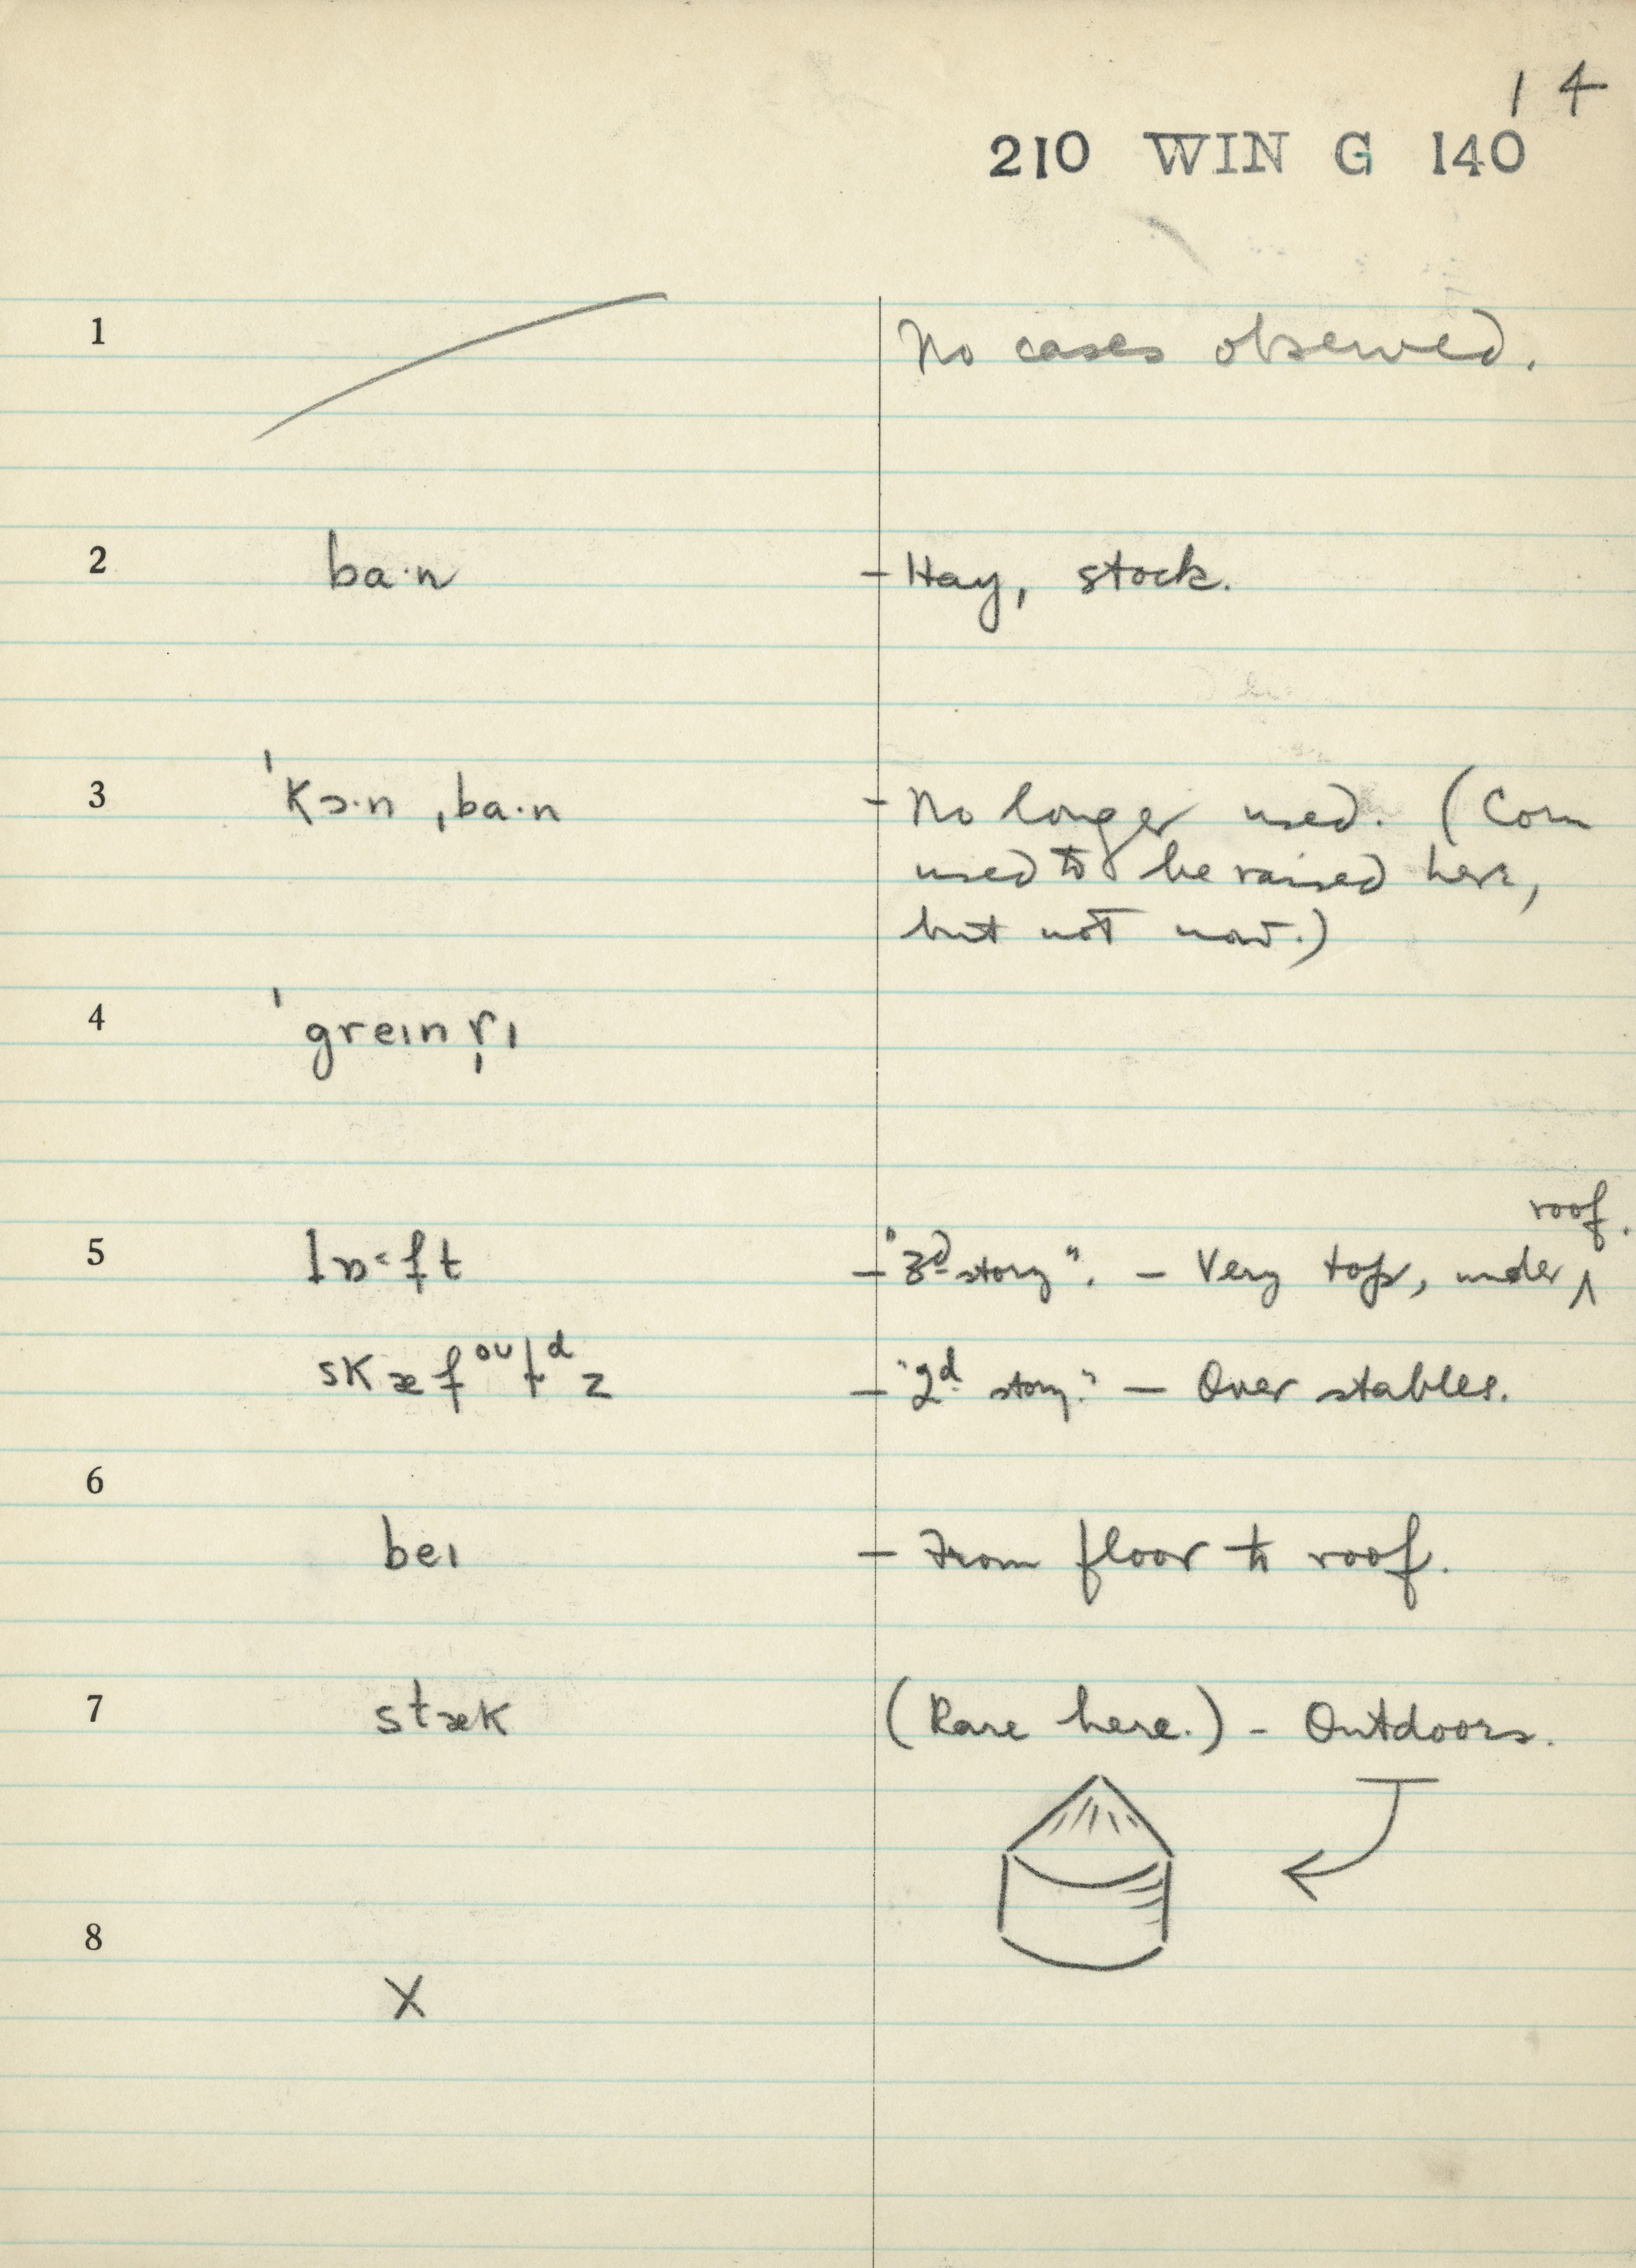 14
210 WIN G 140
1 No cases observed.
2 ba·n – Hay, stock.
3 ˈkɔ·n ˌba·n – No longer used. (Corn
used to be raised here,
but not now.)
4 ˈgreɪnr̩ɪ
roof.
5 lɒ·ft – "3d story". – Very top, under ʌ
skæfoʊldz – "2d story." – Over stables.
6
beɪ – From floor to roof.
7 stæk (Rare here.) – Outdoors.
8
X